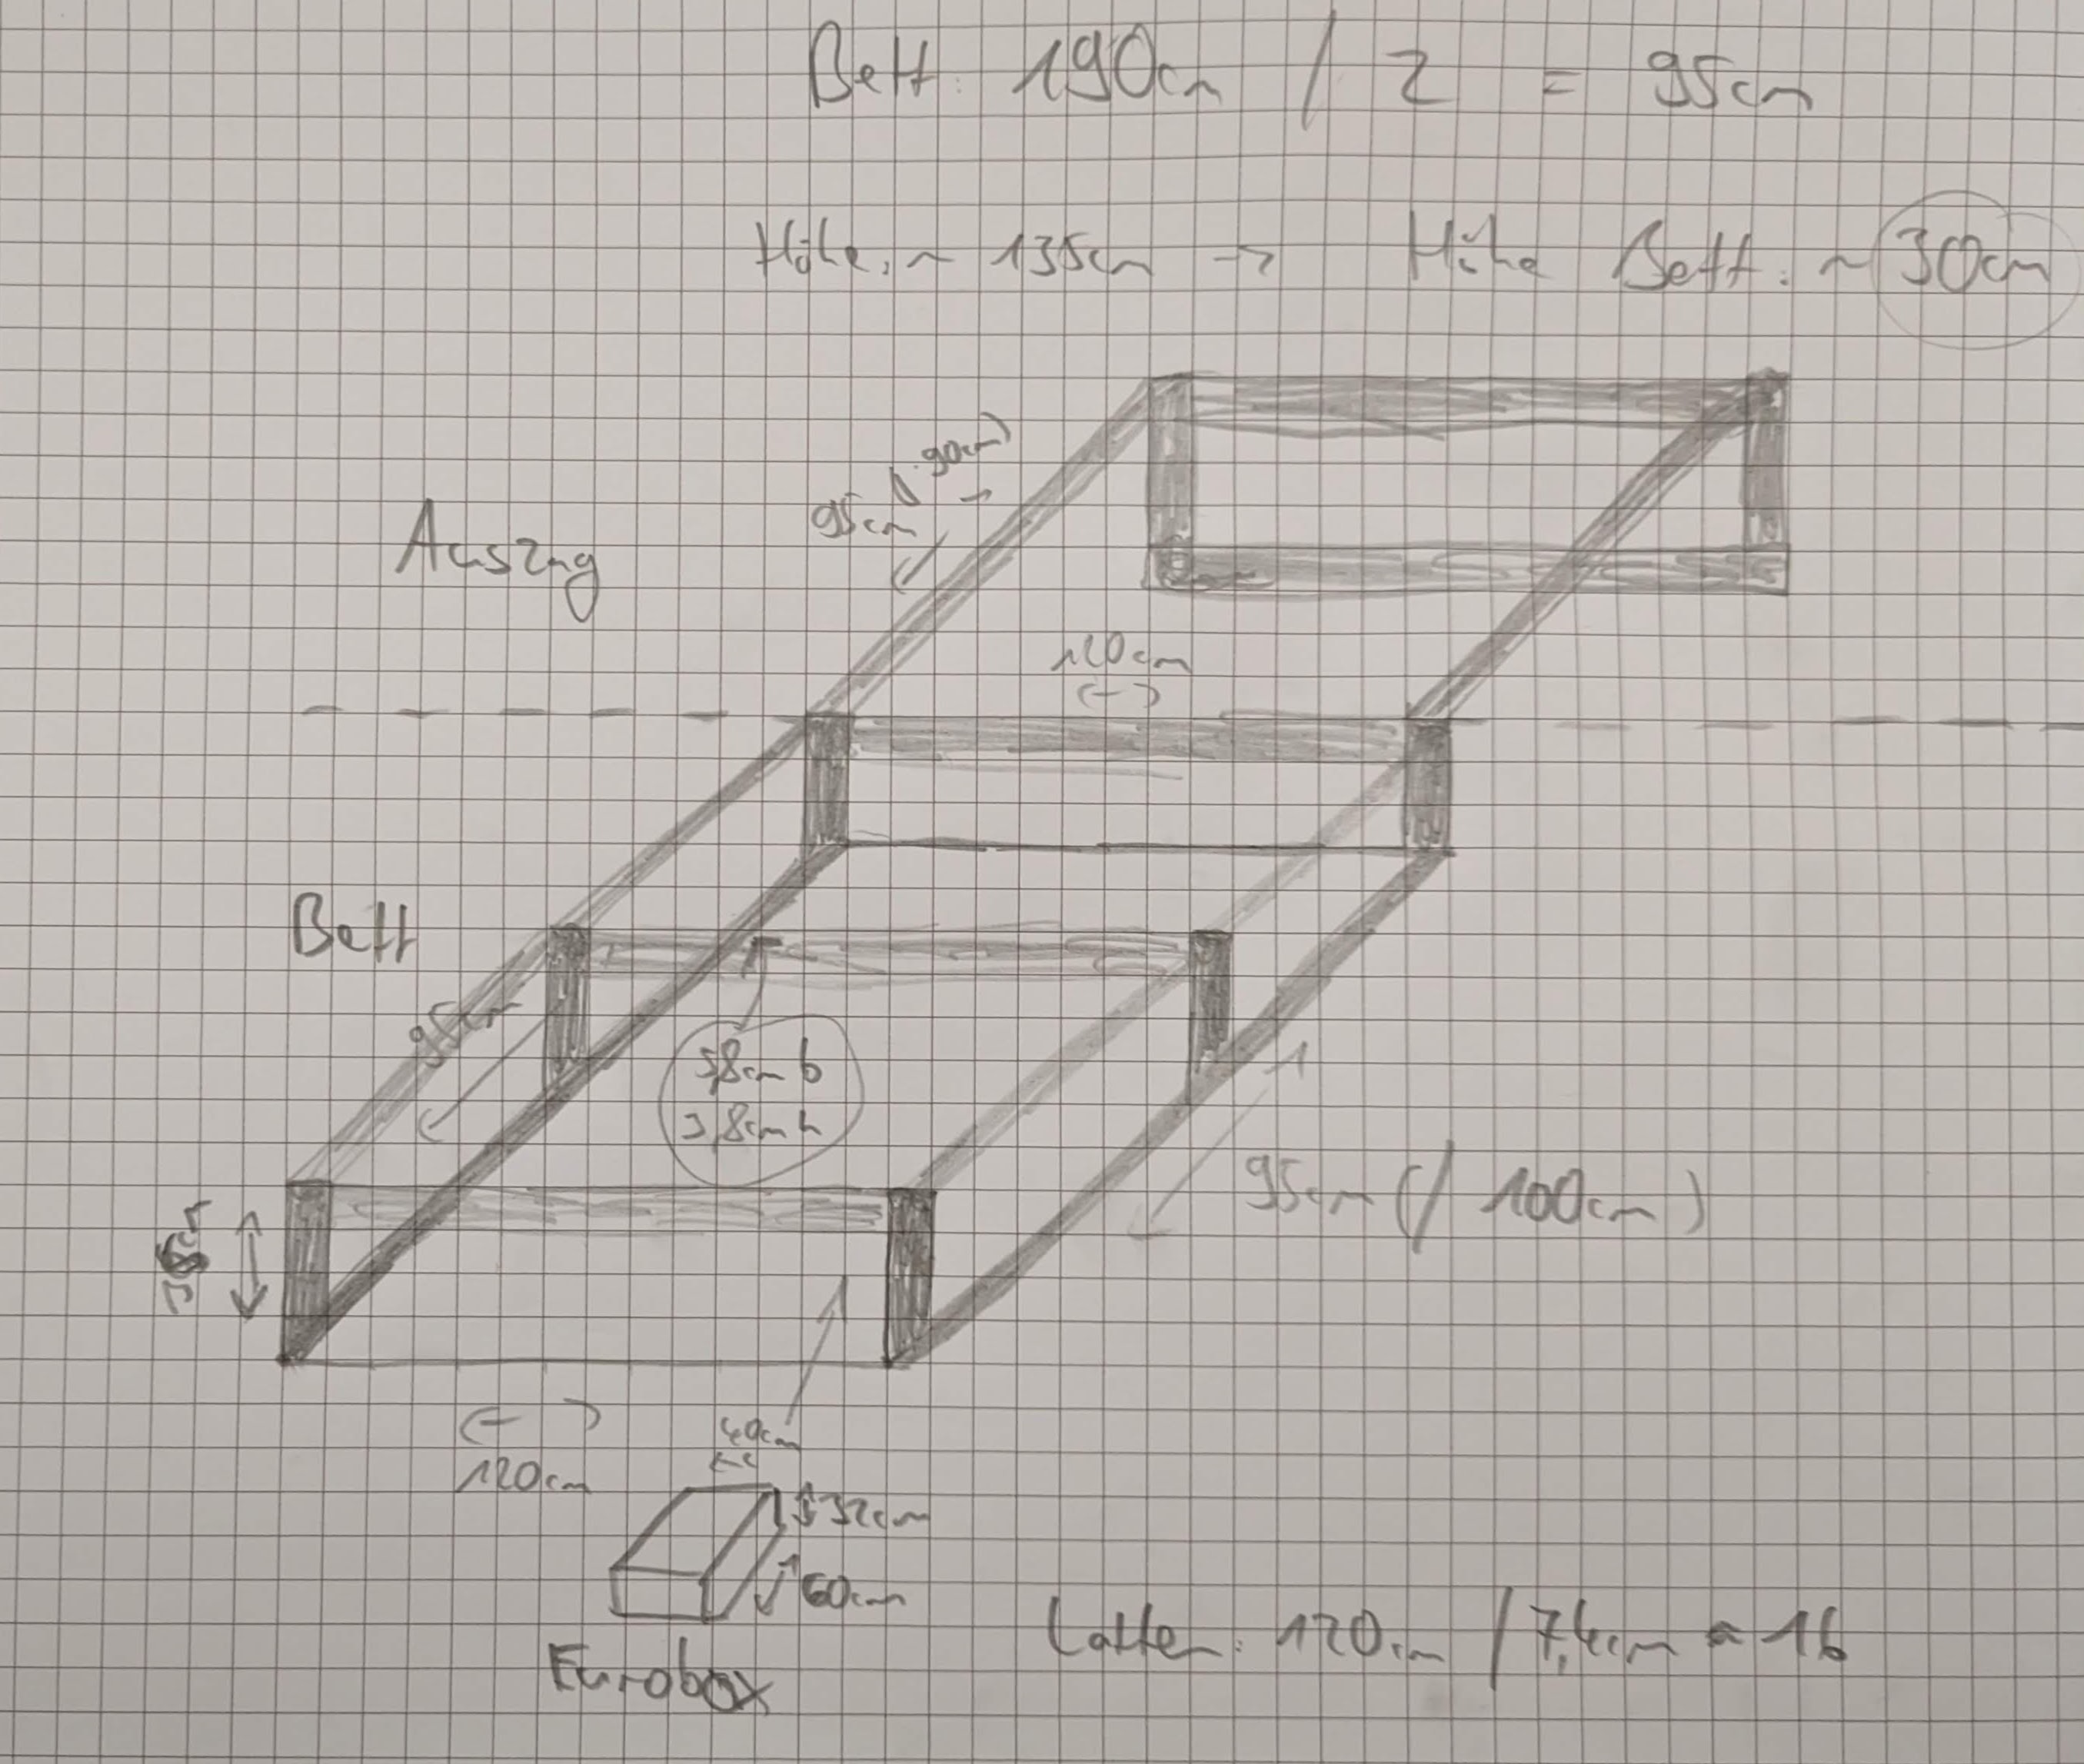 Bett: 190cm / 2 = 95cm
Höhe: ~ 135cm → Höhe Bett: ~ 30cm
95cm (/ 90cm)
Auszug
120cm
Bett
95cm
5,8cm b
3,8cm h
95cm (/ 100cm)
120cm
40cm
32cm
60cm
Eurobox
Latten: 120cm / 7,4cm = 16